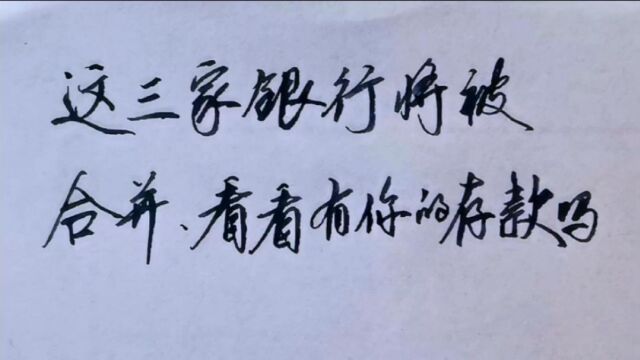 这三家银行将被
合并、看看有你的存款吗